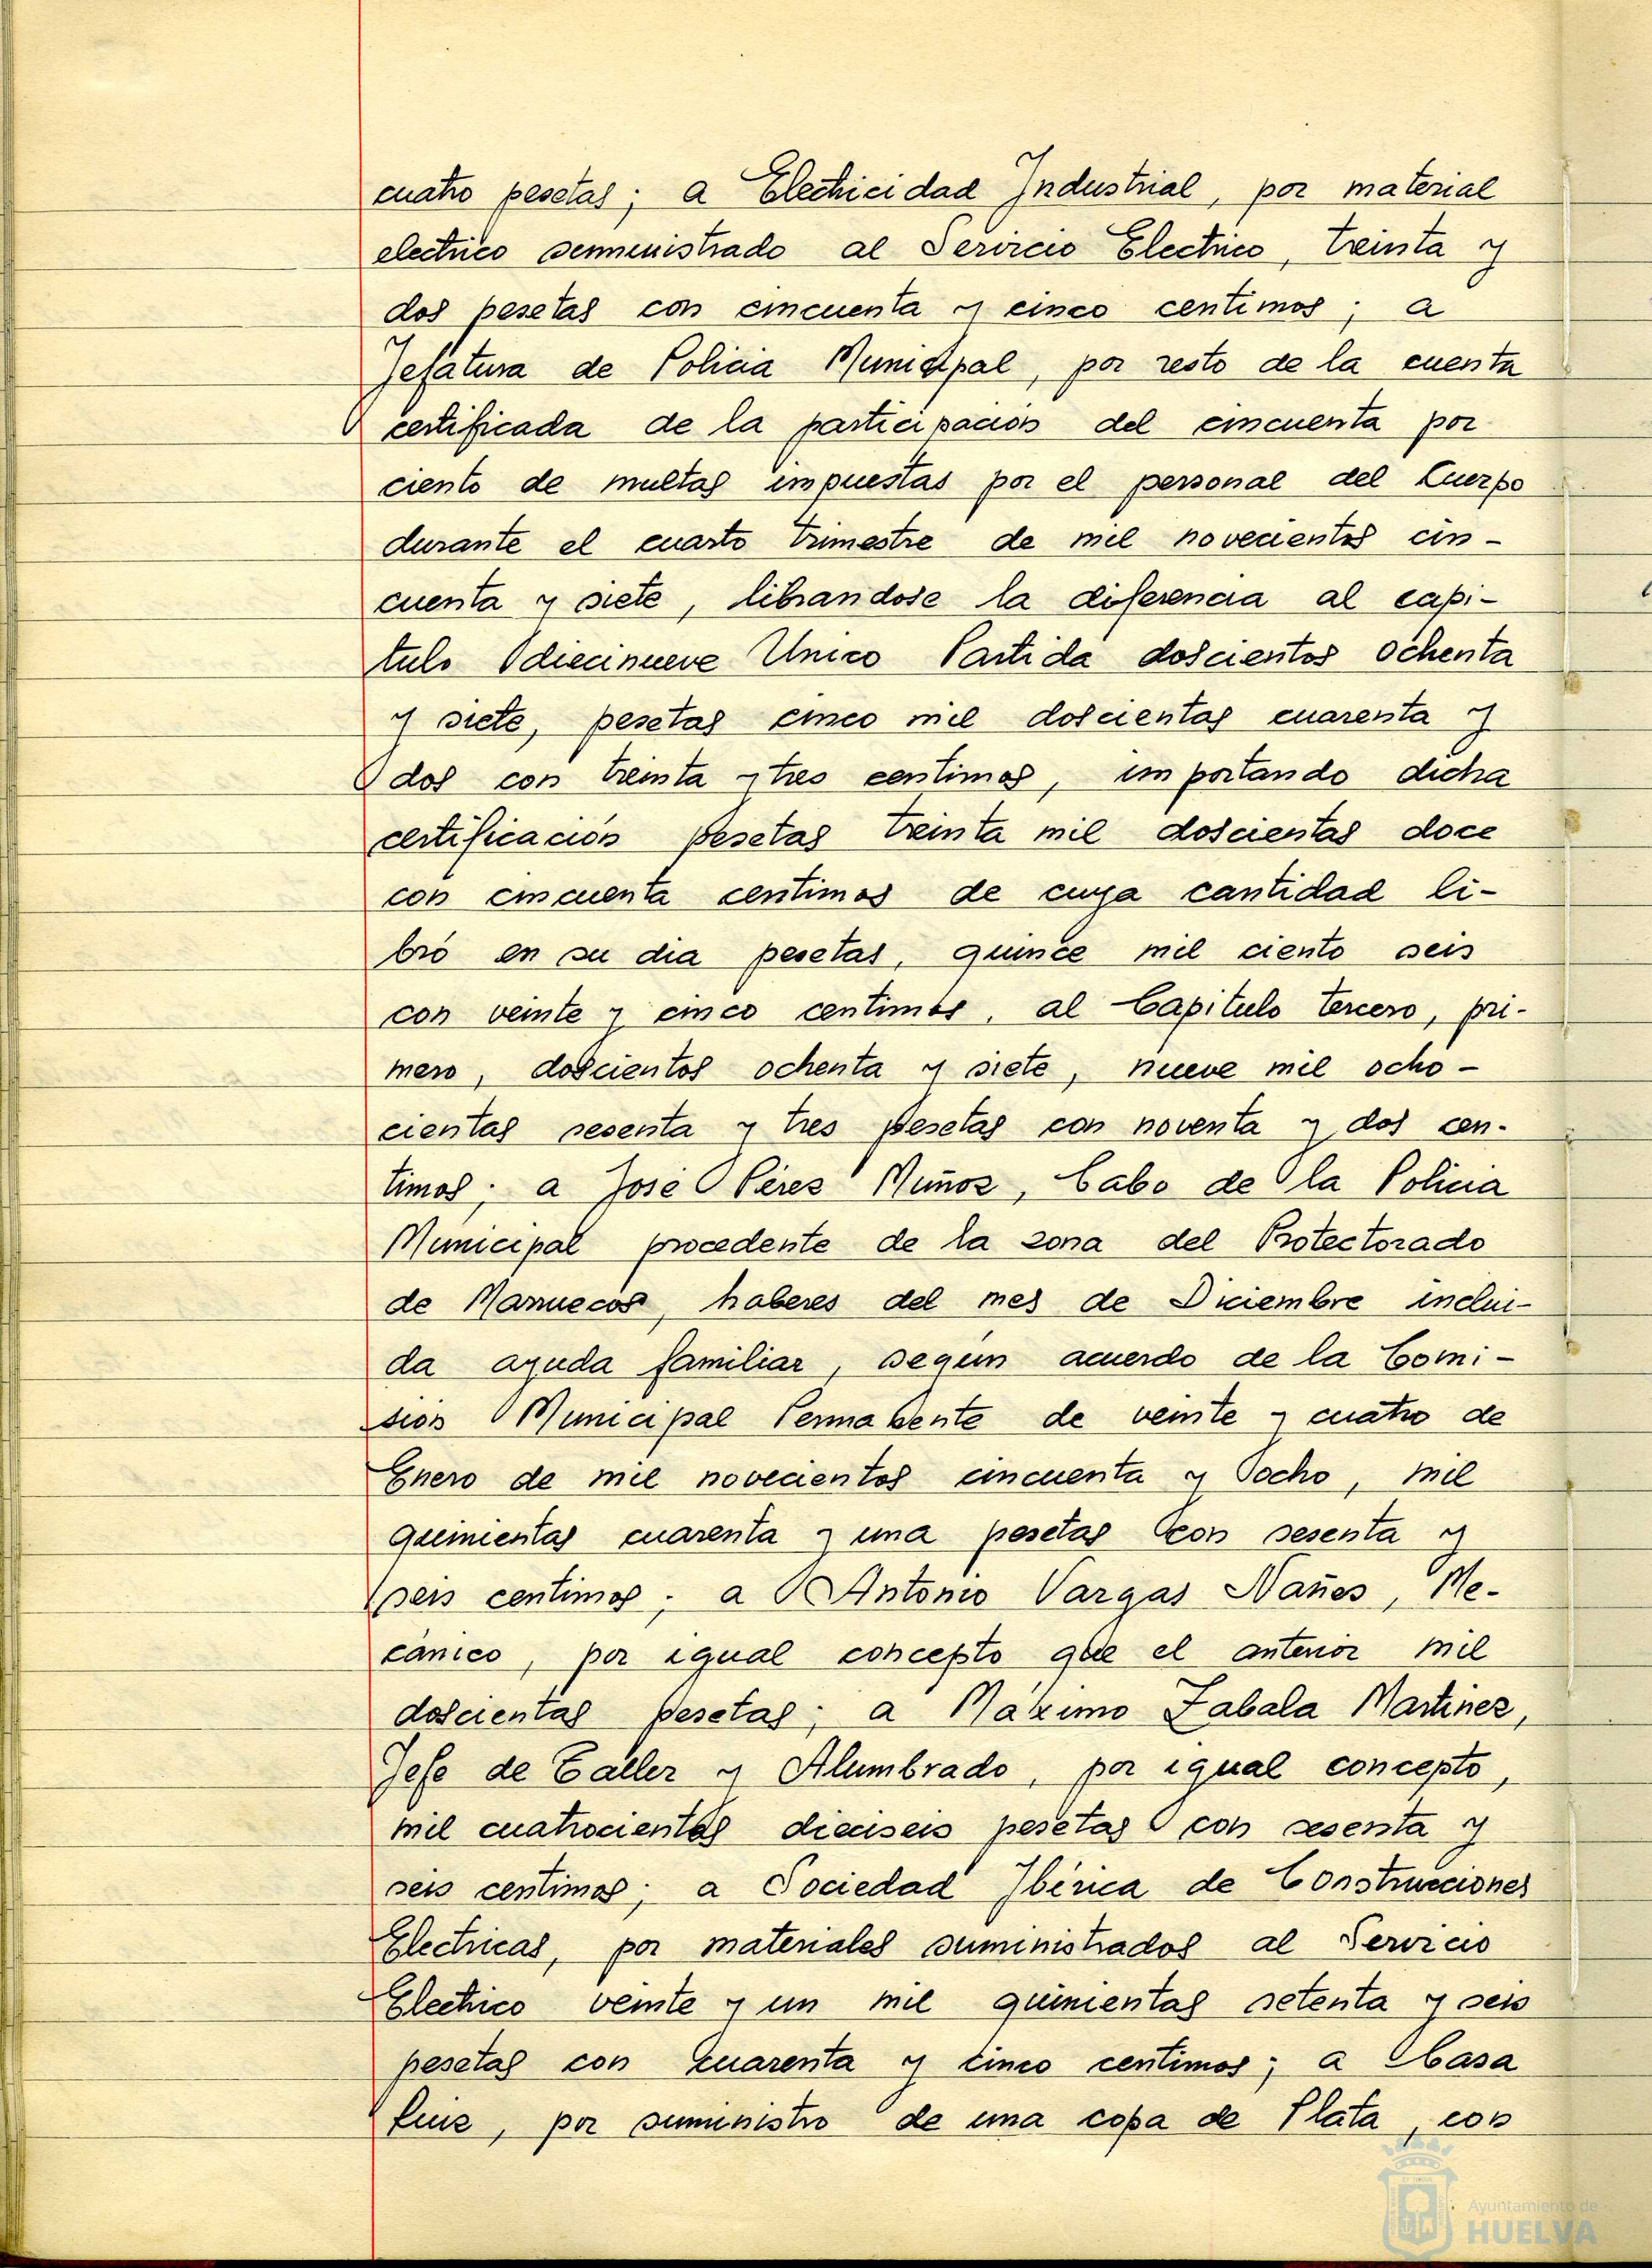 cuatro pesetas; a Electricidad Industrial, por material
electrico suministrado al Servicio Electrico, treinta y
dos pesetas con cincuenta y cinco centimos; a
Jefatura de Policia Municipal, por resto de la cuenta
certificada de la participación del cincuenta por
ciento de multas impuestas por el personal del Cuerpo
durante el cuarto trimestre de mil novecientos cin-
cuenta y siete, librandose la diferencia al capi-
tulo diecinueve Unico Partida doscientos ochenta
y siete, pesetas cinco mil doscientas cuarenta y
dos con treinta y tres centimos, importando dicha
certificación pesetas treinta mil doscientas doce
con cincuenta centimos de cuya cantidad li-
bró en su dia pesetas, quince mil ciento seis
con veinte y cinco centimos, al Capitulo tercero, pri-
mero, doscientos ochenta y siete, nueve mil ocho-
cientas sesenta y tres pesetas con noventa y dos cen-
timos; a José Péres Muñoz, Cabo de la Policia
Municipal procedente de la zona del Protectorado
de Marruecos, haberes del mes de Diciembre inclui-
da ayuda familiar, según acuerdo de la Comi-
sion Municipal Permanente de veinte y cuatro de
Enero de mil novecientos cincuenta y ocho, mil
quinientas cuarenta y una pesetas con sesenta y
seis centimos; a Antonio Vargas Nañes, Me-
cánico, por igual concepto que el anterior mil
doscientas pesetas; a Máximo Zabala Martinez,
Jefe de Taller y Alumbrado, por igual concepto,
mil cuatrocientas dieciseis pesetas con sesenta y
seis centimos; a Sociedad Ibérica de Construcciones
Electricas, por materiales suministrados al Servicio
Electrico veinte y un mil quinientas setenta y seis
pesetas con cuarenta y cinco centimos; a Casa
Ruiz, por suministro de una copa de Plata, con
Ayuntamiento de
HUELVA